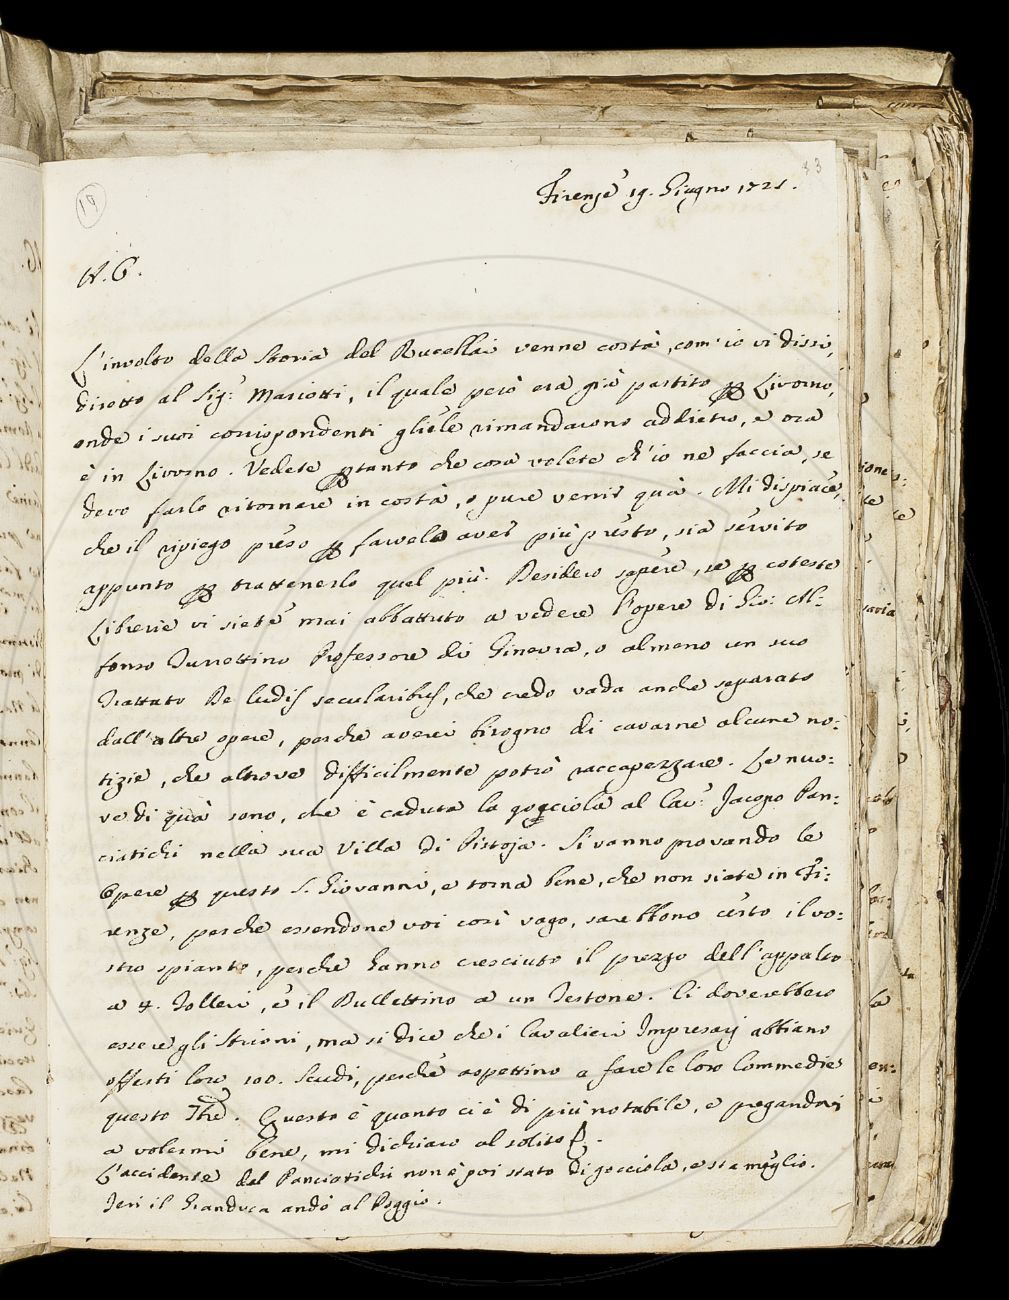 19
Firenze 19. Giugno 1721.
A. C.
L'involto della Storia del Rucellai venne costà, com'io vi dissi,
diretto al Sig.r Mariotti, il quale però era già partito ꝑ Livorno,
onde i suoi corrispondenti gliele rimandarono addietro, e ora
è in Livorno. Vedete ꝑtanto che cosa volete ch'io ne faccia, se
devo farlo ritornare in costà, o pure venir quà. Mi dispiace,
che il ripiego preso ꝑ farvelo aver più presto, sia servito
appunto ꝑ trattenerlo quel più. Desidero sapere, se ꝑ coteste
Librerie vi siete mai abbattuto a vedere l'opere di Gio: Al=
fonso Turrettino Professore di Ginevra, o almeno un suo
Trattato De ludis secularibus, che credo vada anche separato
dall'altre opere, perche averei bisogno di cavarne alcune no=
tizie, che altrove difficilmente potrò raccapezzare. Le nuo=
ve di quà sono, che è caduta la gocciola al Cav.r Jacopo Pan=
ciatichi nella sua Villa di Pistoja. Si vanno provando le
Opere ꝑ questo S. Giovanni, e torna bene, che non siate in Fi=
renze, perche essendone voi così vago, sarebbono certo il vo=
stro spianto, perche hanno cresciuto il prezzo dell'appalto
a 4. Tolleri, e il Bullettino a un Testone. Ci doverebbero
essere gli Strioni, ma si dice che i Cavalieri Impresarj abbiano
offerti loro 100. Scudi, perche aspettino a fare le loro Commedie
questo . Questo è quanto ci è di più notabile, e pregandovi
a volermi bene, mi dichiaro al solito
L'accidente del Panciatichi non è poi stato di gocciola, e sta meglio.
Jeri il Granduca andò al Poggio.